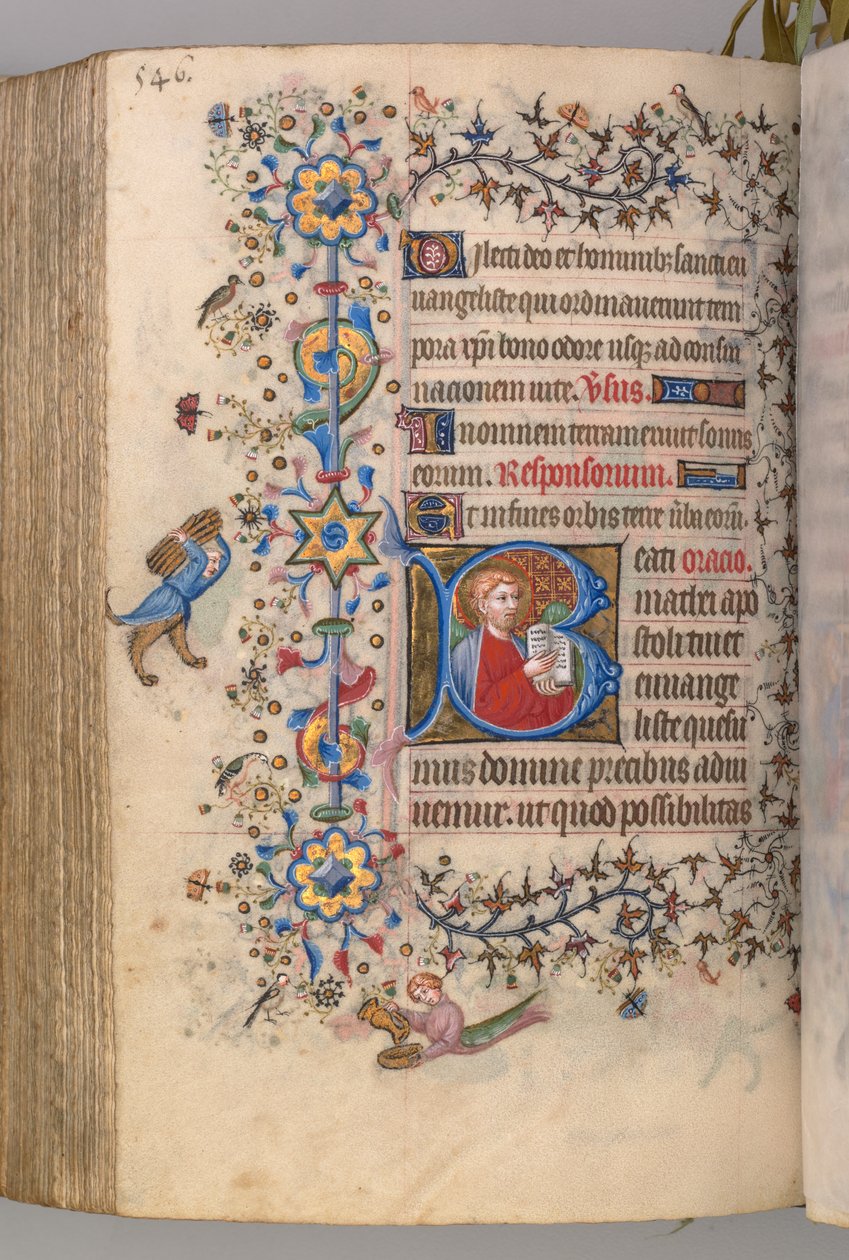 546.
Dilecti deo et hominibꝫ sancti eu
uangeliste qui ordinauerunt tem
pora xp̄i bono odore usqꝫ ad consu
nacionem uite. V̄sus.
In omnem terram exiuit sonus
eorum. Responsorium.
Et in fines orbis terre ūba eoꝝ.
Beati oracio.
mathei apo
stoli tui et
euuange
liste quesu
mus domine precibus adiu
uemur. ut quod possibilitas